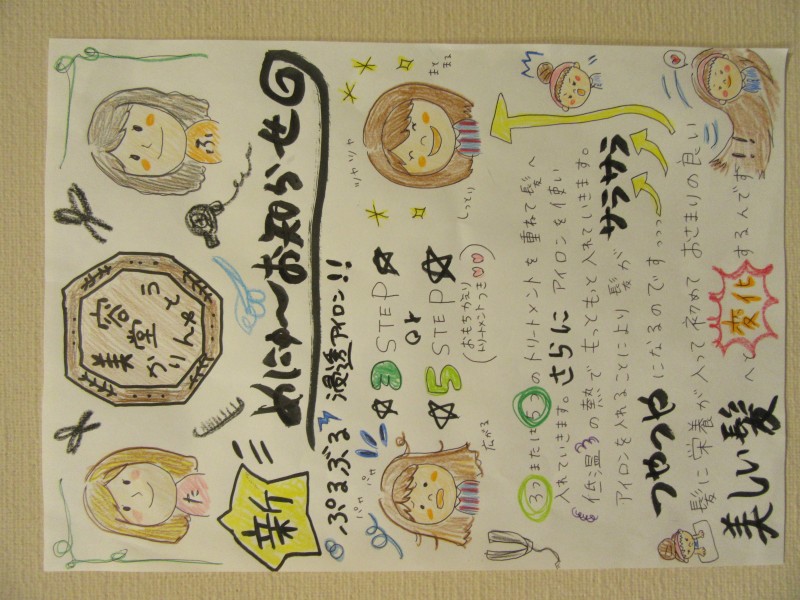 た
ふ
美容堂
かりんとう
新
めにゅ〜お知らせ
ぷるぷる浸透アイロン!!
☆3 STEP☆
or
☆5 STEP☆
(おもちかえり
トリートメントつき♡♡)
パサパサ
広がる
ツヤツヤ
まとまる
しっとり
3つまたは5つのトリートメントを重ねて髪へ
入れていきます。さらにアイロンを使い
低温の熱でもっともっと入れていきます。
アイロンを入れることにより髪がサラサラ
つやつやになるのですっっっ
髪に栄養が入って初めておさまりの良い
美しい髪へと変化するんです!!